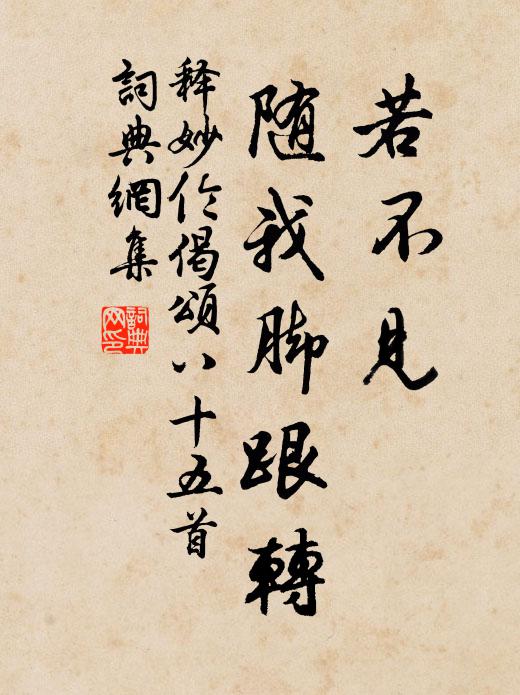 若不見
随我脚跟轉
释妙伦偈頌八十五首
詞典網集
詞典网印